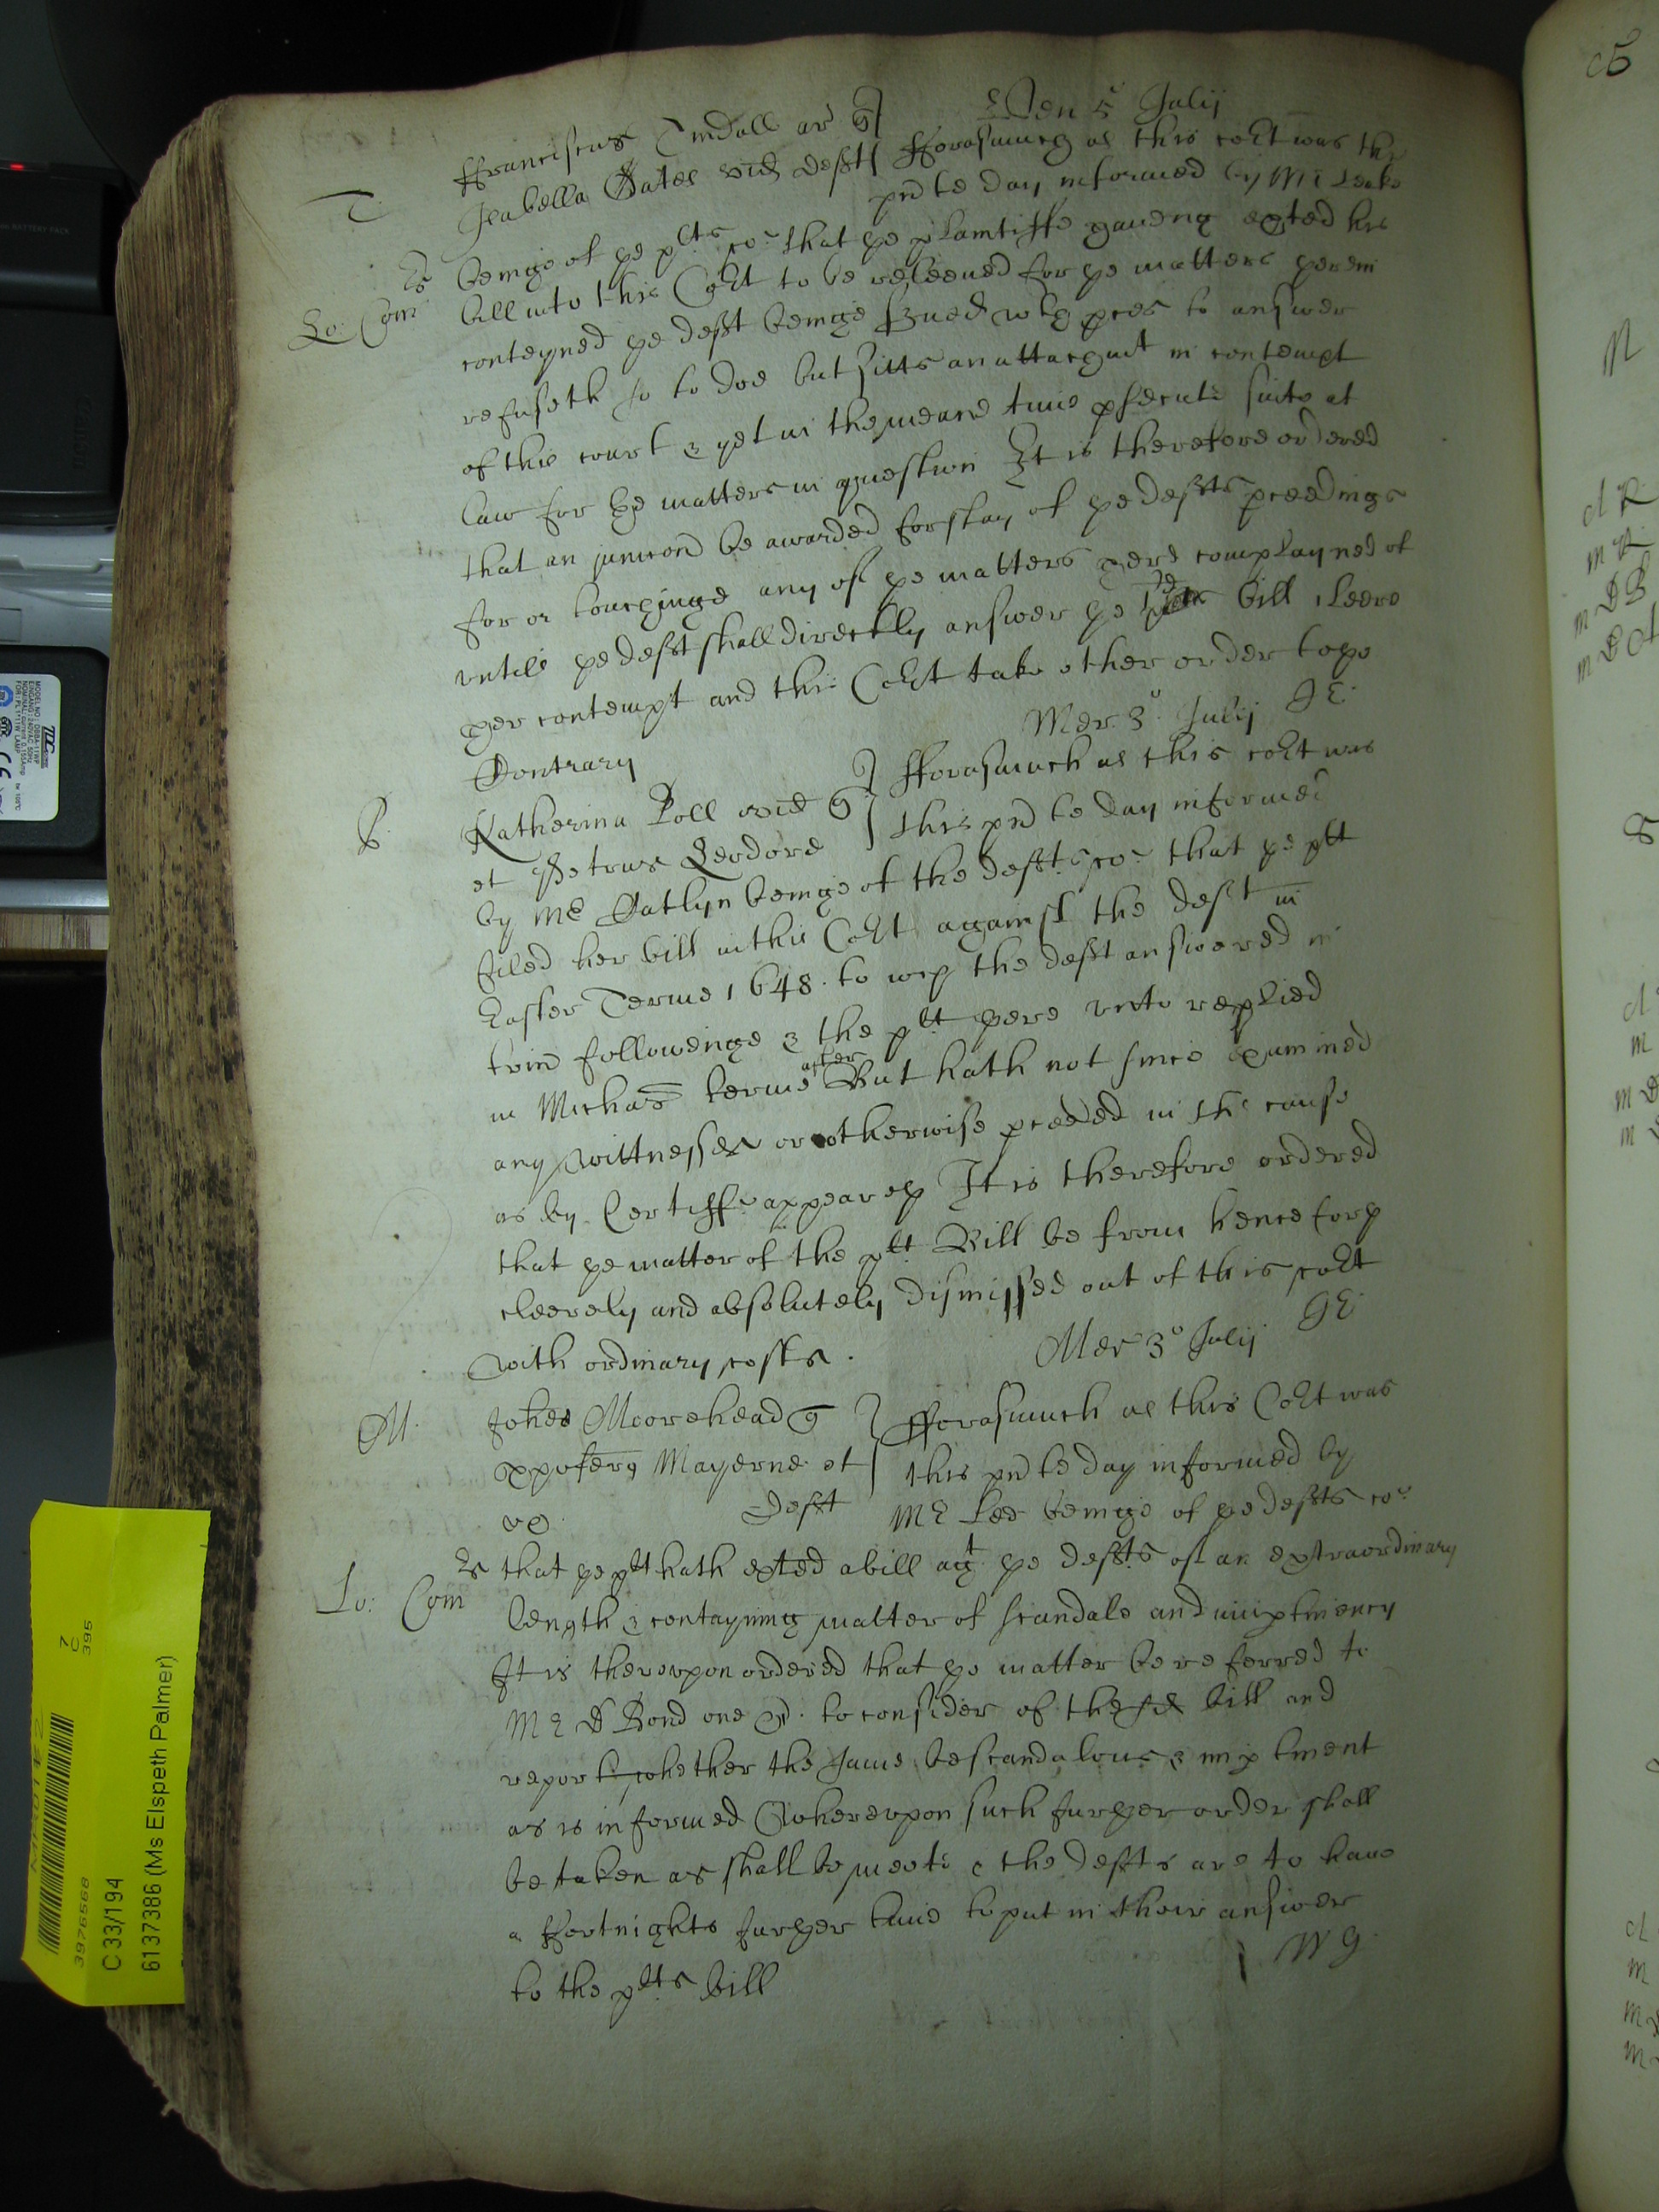 Ven 5 Julij
T ffranciscus Tindall ar q
Isabella Bates vid Defft fforasmuch as this Cort was this
pnte day informed by Mr Leake
beinge of ye plts co that ye plaintiffe haveing exted his
Lo: Com bill into this Cort to be releeved for ye matters yerein
conteyned ye defft beinge served wth pces to answer
refuseth so to doe but sitts an attachmt in contempt
of this court & yet in the meane time psecute suite at
law for ye matters in question It is therefore ordered
that an iniuncon be awarded for stay of ye deffts pceedings
for or touchinge any of ye matters here complayned of
untill ye defft shall directly answer ye bill cleere
her contempt and this Cort take other order to ye
Contrary
JE
Mer 3o Julij
P Katherina Poll vid q fforasmuch as this Cort was
et Petrus Leodore this pnte day informed
by Mr Catlyn beinge of the deffts co that ye plt
filed her bill in this Cort against the deft in
Easter Terme 1648 to wch the defft answered in
Trin followeinge & the plt yere unto replied
in Michas terme after But hath not since examined
any wittnesses or otherwise pceeded in the cause
as by Certiff appeareth It is therefore ordered
that ye matter of the plt Bill be from henceforth
cleerely and absolutely dismissed out of this Cort
with ordinary costs.
JE
Mer 3o Julij
M Johes Moorehead q fforasmuch as this Cort was
Xpofers Mayerne et this pnte day informed by
ux Defft Mr Lee beinge of ye deffts co
that ye plt hath exted a bill agt ye deffts of an extraordinary
Lo: Com length & contayning matter of scandale and imptinency
It is thereupon ordered that ye matter be referred to
Mr D Bond one &c. to consider of the sd bill and
report whether the same be scandalous & imptinent
as is informed Whereupon such further order shall
be taken as shall be meete & the deffts are to have
a ffortnights further time to put in their answer
to the plts bill
W G
MODEL NO.
TDC
CE
C 33/194
6137386 (Ms Elspeth Palmer)
3976568
7
C
395